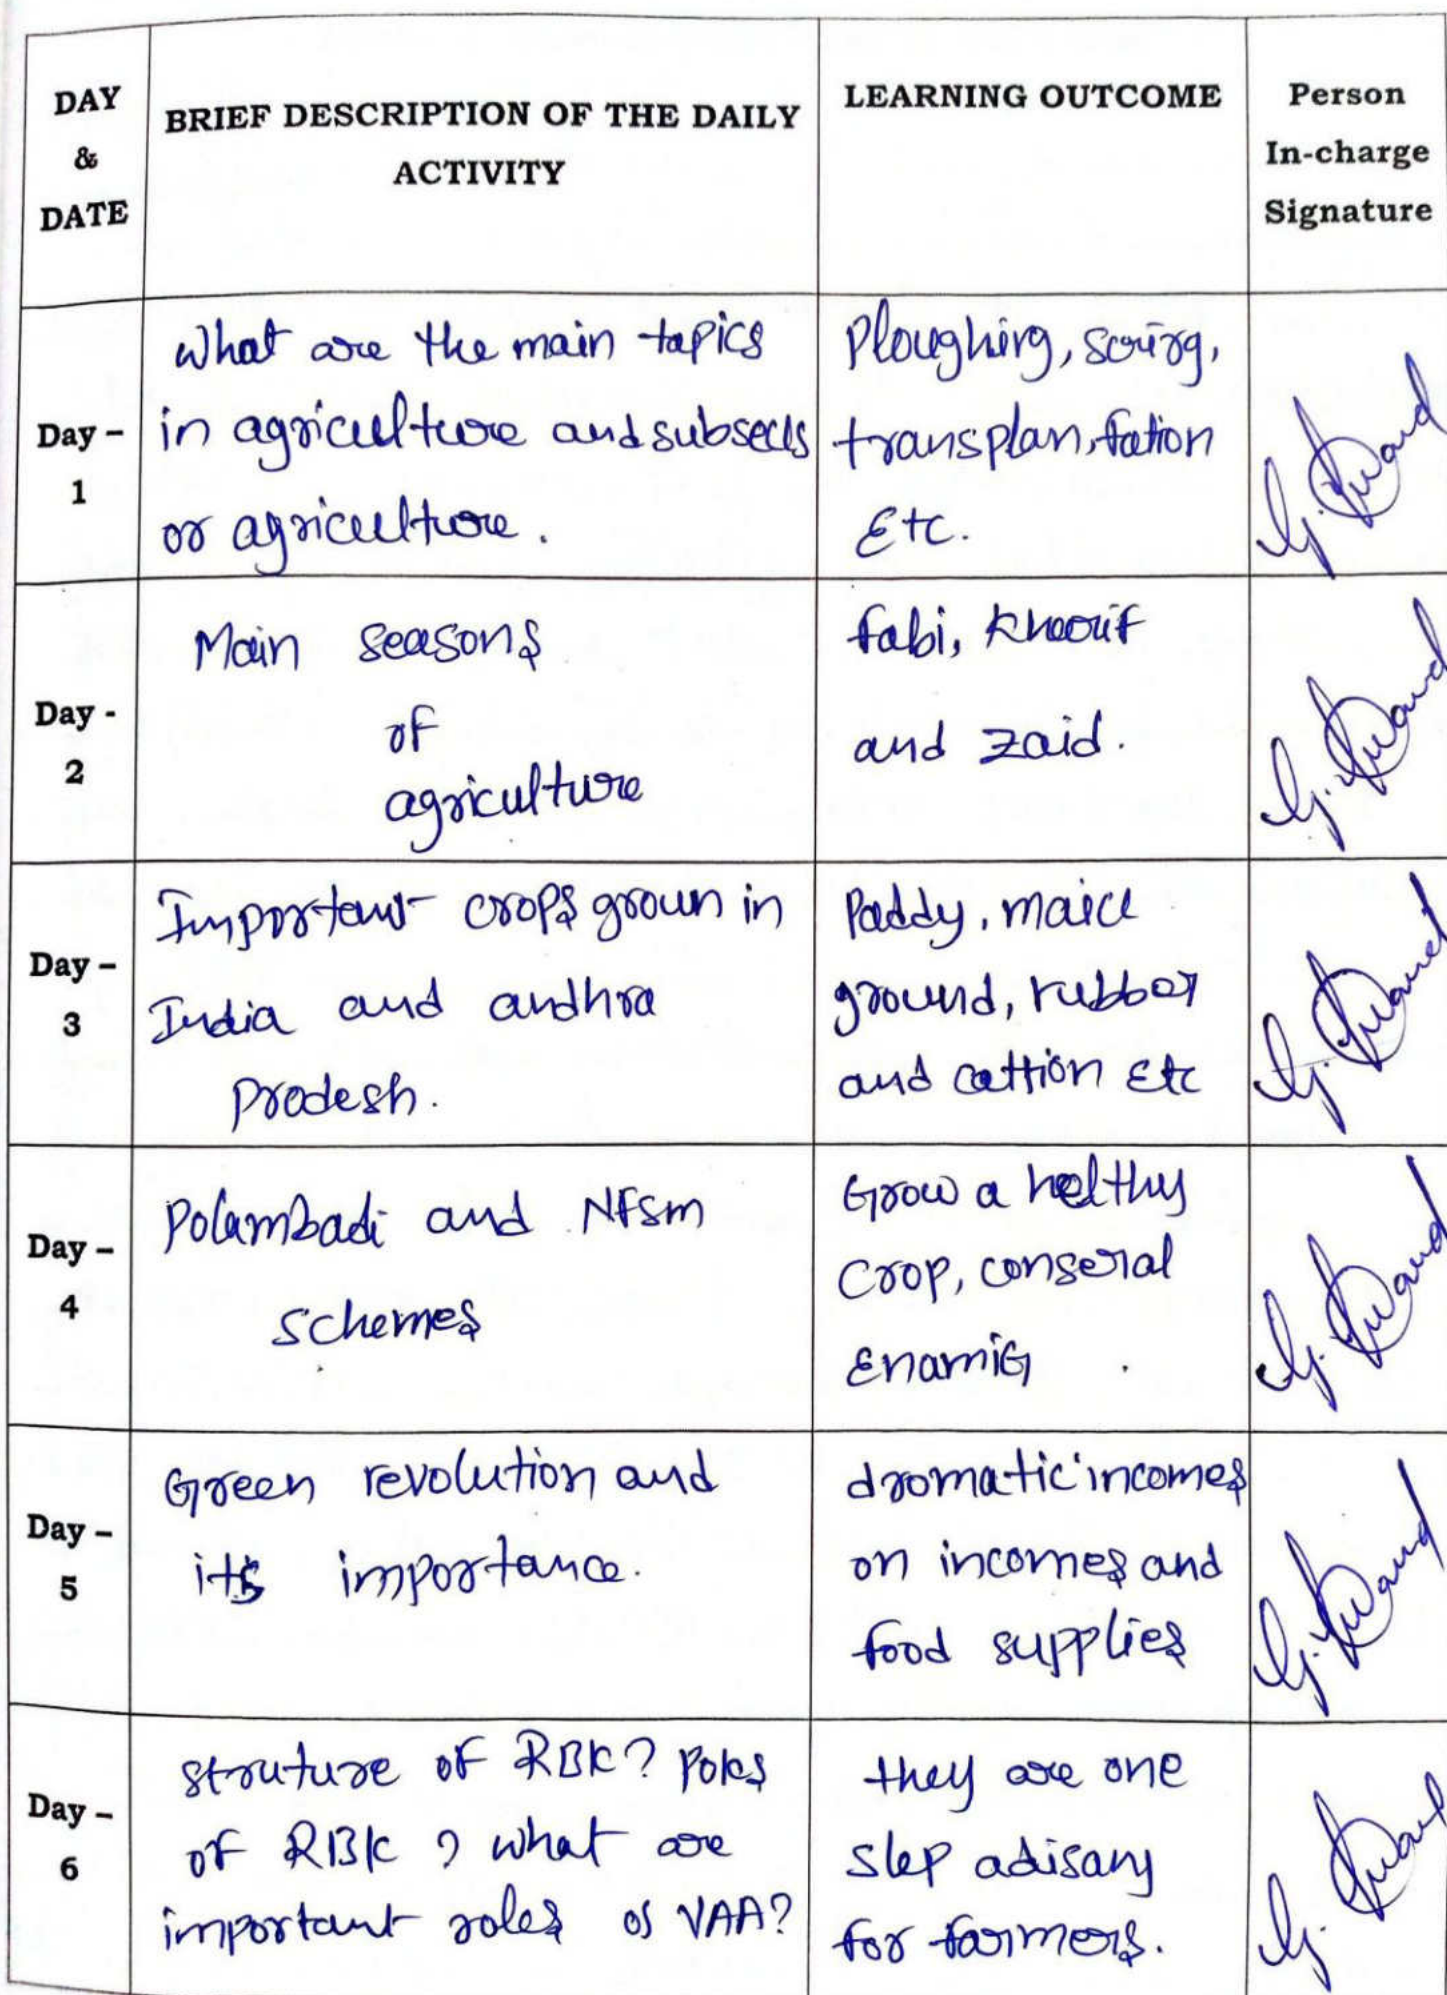 DAY & DATE
BRIEF DESCRIPTION OF THE DAILY
ACTIVITY
LEARNING OUTCOME
Person
In-charge
Signature
Day –
1
What are the main tapics
in agriculture and subsects
or agriculture.
Ploughing,
transplan,tation
Etc.
Day -
2
Main seasons
of
agriculture
fabi, kharif
and zaid.
Day –
3
Important crops grown in
India and andhra
Pradesh.
Paddy, maice
ground, rubber
and cattion Etc
Day –
4
Polambadi and NFSM
schemes
Grow a helthy
Crop, conseral
Enamig
Day –
5
Green revolution and
its importance.
dromatic incomes
on incomes and
food supplies
Day –
6
struture of RBK? Poles
of RBK ? what are
important roles of VAA?
they are one
slep adisary
for farmers.